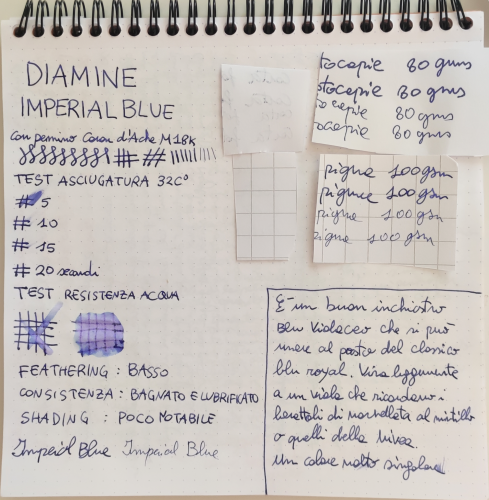 DIAMINE
IMPERIAL BLUE
con pennino Caran d'Ache M 18k
TEST ASCIUGATURA 32C°
# 5
# 10
# 15
# 20 secondi
TEST RESISTENZA ACQUA
FEATHERING : BASSO
CONSISTENZA : BAGNATO E LUBRIFICATO
SHADING : POCO NOTABILE
Imperial Blue Imperial Blue
tocopie 80 gms
stocopie 80 gms
tocopie 80 gms
ocopie 80 gms
pigna 100gsm
pigna 100gsm
pigna 100gsm
igna 100gsm
È un buon inchiostro
blu violaceo che si può
usare al posto del classico
blu royal. Vira leggermente
a un viola che ricordano i
barattoli di marmellata al mirtillo
o quelli della
un colore molto singolare